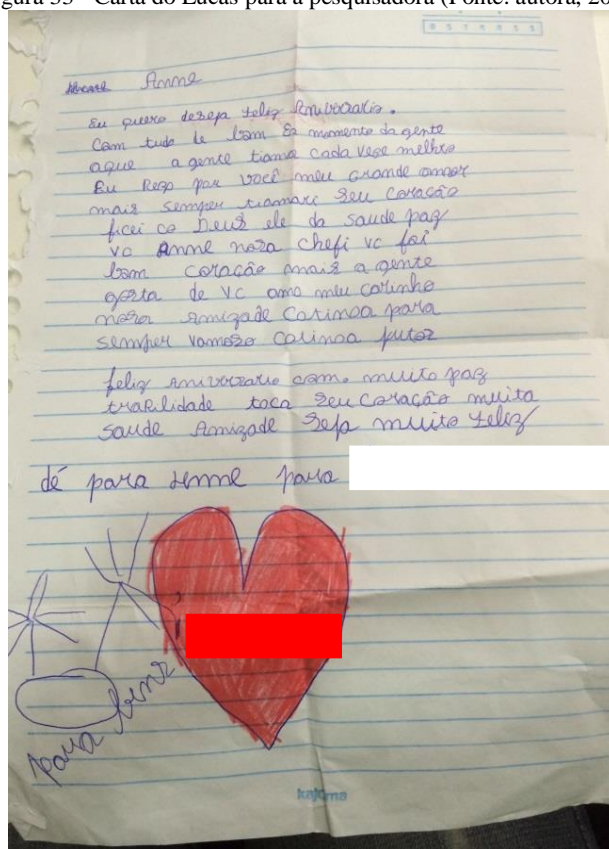 Figura 33 - Carta do Lucas para a pesquisadora (Fonte: autora, 20
0 5 7 3 8 5 1
Anne
Eu quero deseja feliz Anivocario.
Com tudo de bom Ea momento da gente
aque a gente tiama cada vese melhro
Eu Rego por você meu grande amor
mais sempre tiamari Seu Coração
ficei co Deus ele da saude paz
vo Anne nosa chefi vc foi
bom coração mais a gente
gosta de vc amo meu carinho
nosa Amizade Carinoa para
sempre vamoso carinoa
feliz Anivirzario com. muito paz
traRilidade toca Seu Coração muita
saude Amizade Seja muito feliz
dé para para
para
kajoma